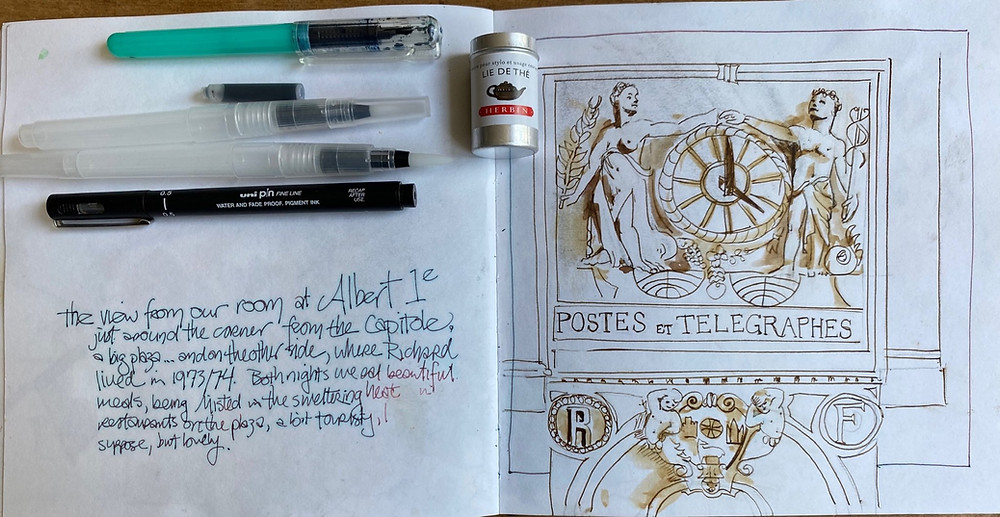 pour stylo et usage
LIE DE THÉ
HERBIN
uni pin FINE LINE
WATER AND FADE PROOF, PIGMENT INK
RECAP
AFTER
USE
0.5
0.5
the view from our room at Albert 1e
just around the corner from the Capitole,
a big plaza... and on the other side, where Richard
lived in 1973/74. Both nights we eat beautiful
meals, being misted in the sweltering heat
restaurants on the plaza, a bit touristy, I
suppose, but lovely.
POSTES ET TELEGRAPHES
R
F